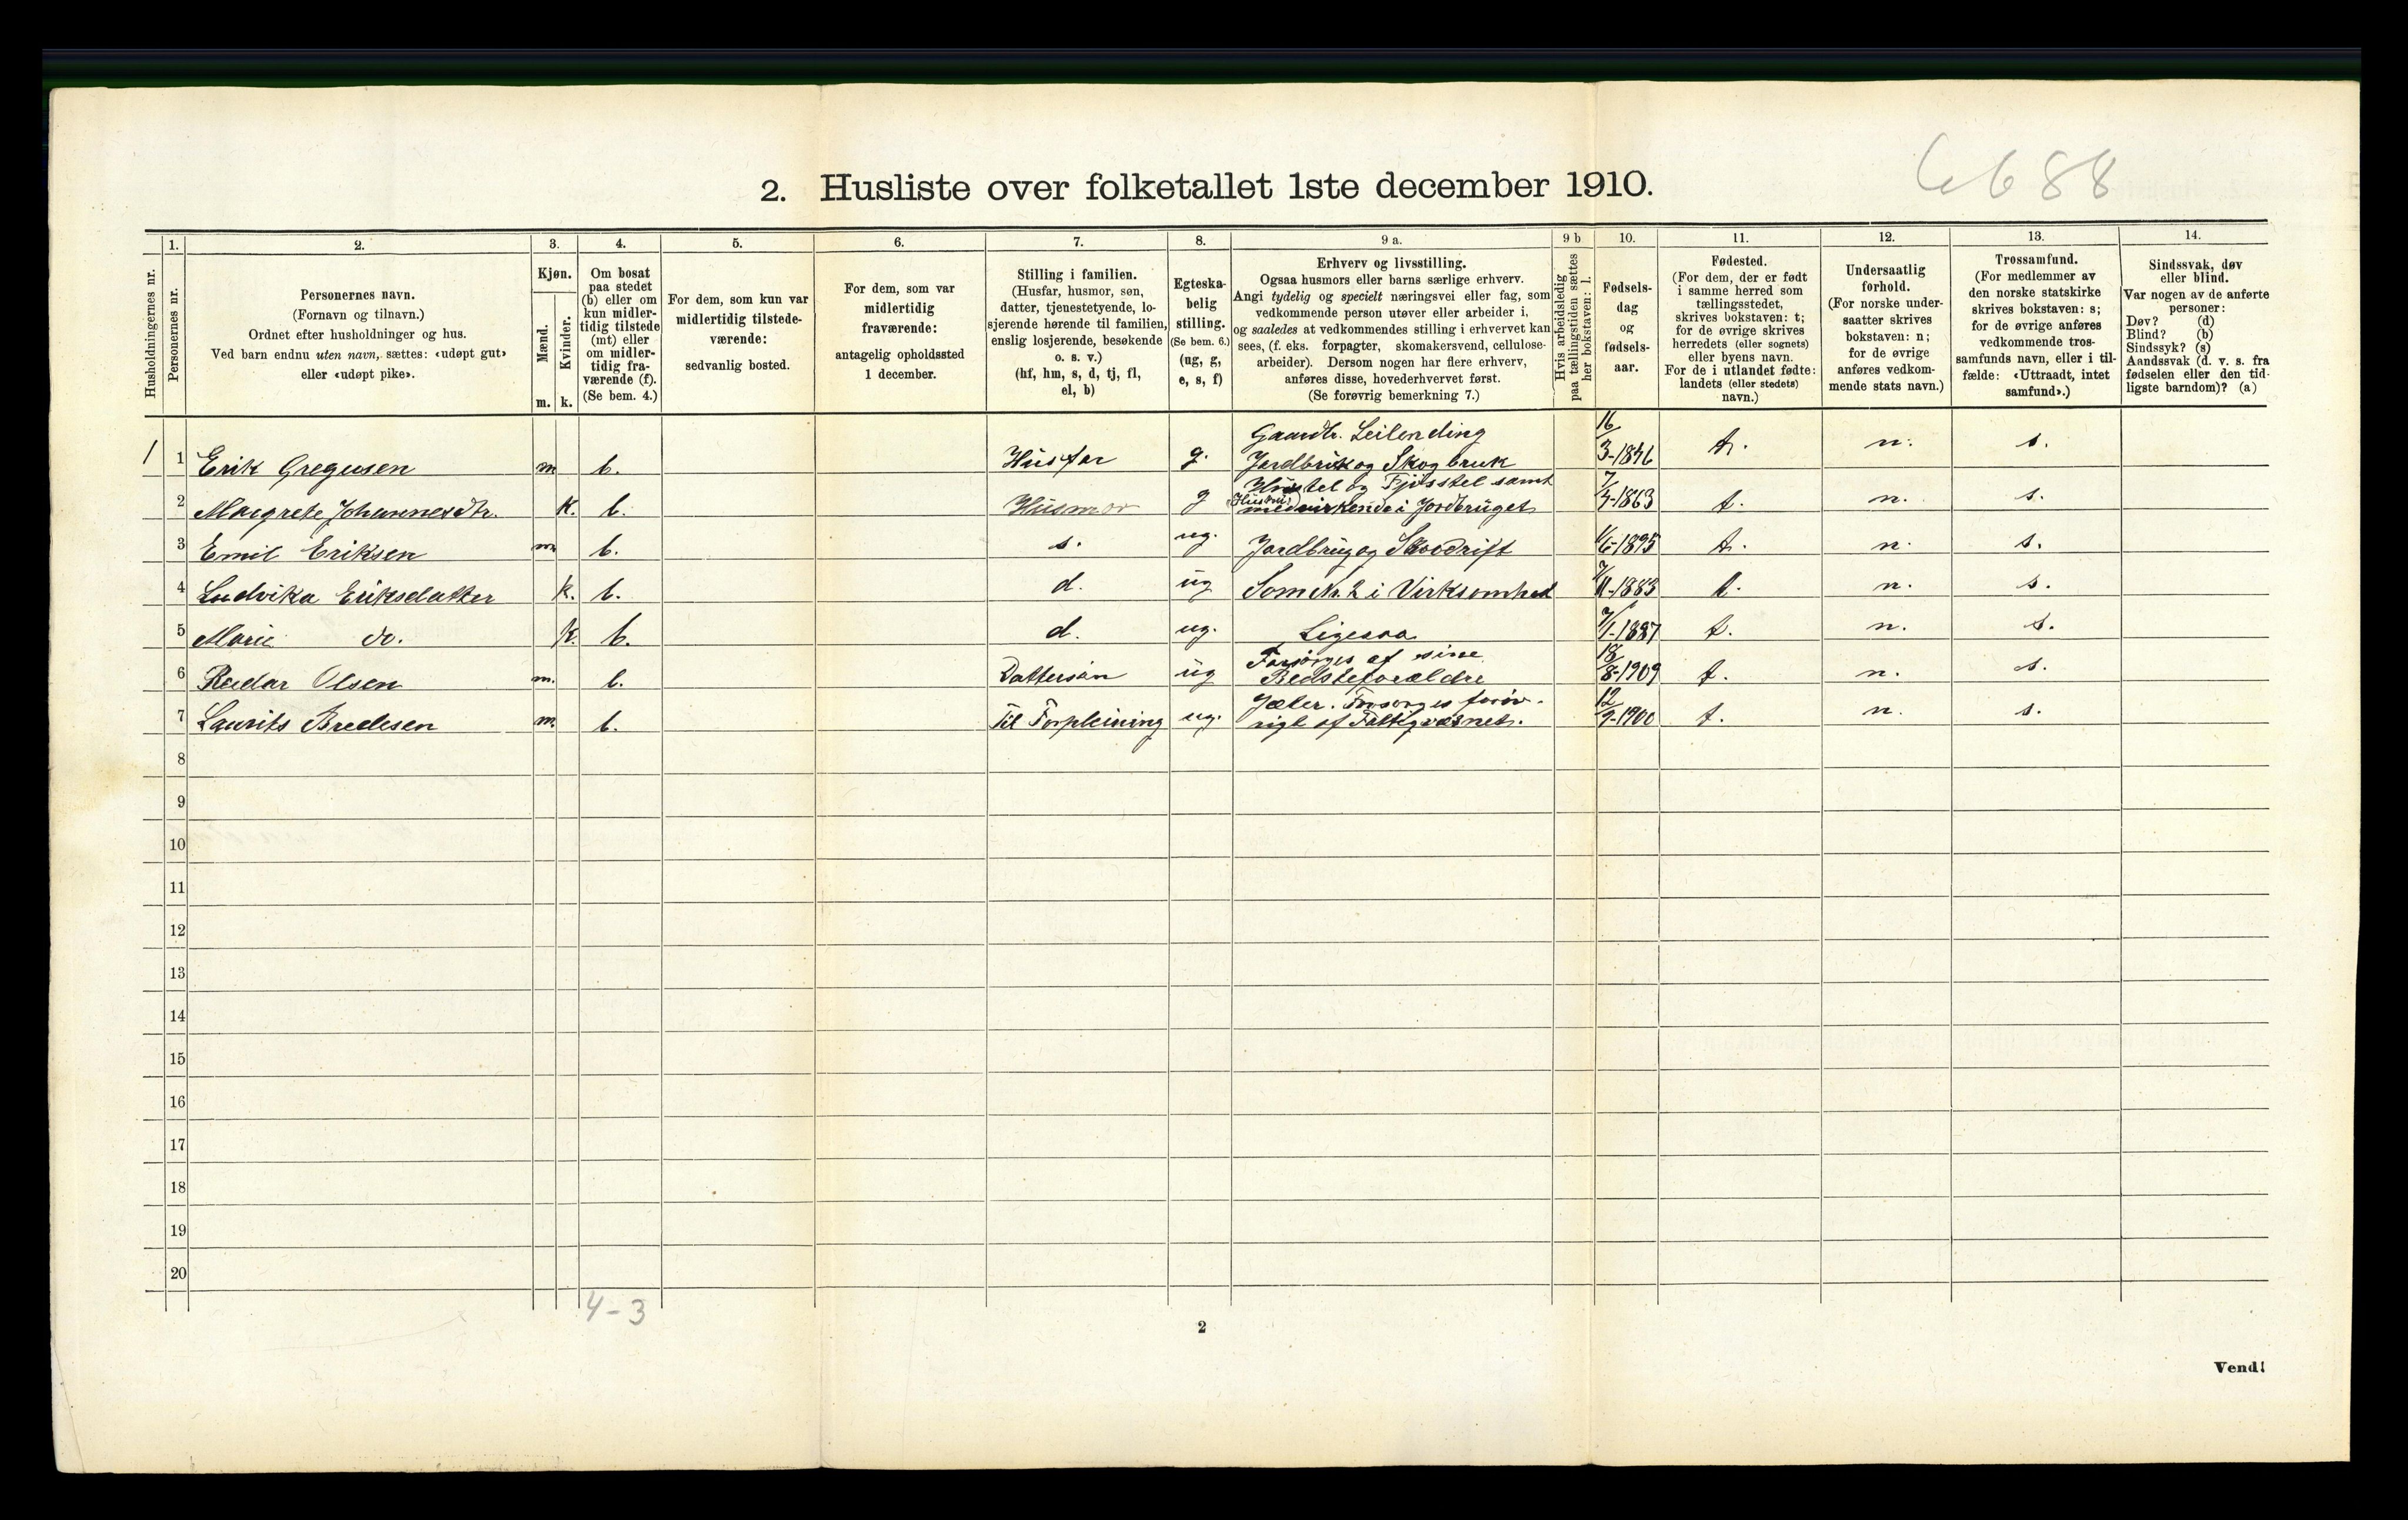 6688
2. Husliste over folketallet 1ste december 1910.
Husholdningernes nr.
1.
Personernes nr.
2.
Personernes navn.
(Fornavn og tilnavn.)
Ordnet efter husholdninger og hus.
Ved barn endnu uten navn, sættes: «udøpt gut»
eller «udøpt pike».
3.
Kjøn.
Mænd.
Kvinder.
m. k.
4.
Om bosat
paa stedet
(b) eller om
kun midler-
tidig tilstede
(mt) eller
om midler-
tidig fra-
værende (f).
(Se bem. 4.)
5.
For dem, som kun var
midlertidig tilstede-
værende:
sedvanlig bosted.
6.
For dem, som var
midlertidig
fraværende:
antagelig opholdssted
1 december.
7.
Stilling i familien.
(Husfar, husmor, søn,
datter, tjenestetyende, lo-
sjerende hørende til familien,
enslig losjerende, besøkende
o. s. v.)
(hf, hm, s, d, tj, fl,
el, b)
8.
Egteska-
belig
stilling.
(Se bem. 6.)
(ug, g,
e, s, f)
9 a.
Erhverv og livsstilling.
Ogsaa husmors eller barns særlige erhverv.
Angi tydelig og specielt næringsvei eller fag, som
vedkommende person utøver eller arbeider i,
og saaledes at vedkommendes stilling i erhvervet kan
sees, (f. eks. forpagter, skomakersvend, cellulose-
arbeider). Dersom nogen har flere erhverv,
anføres disse, hovederhvervet først.
(Se forøvrig bemerkning 7.)
9 b
Hvis arbeidsledig
paa tællingstiden sættes
her bokstaven: l.
10.
Fødsels-
dag
og
fødsels-
aar.
11.
Fødested.
(For dem, der er født
i samme herred som
tællingsstedet,
skrives bokstaven: t;
for de øvrige skrives
herredets (eller sognets)
eller byens navn.
For de i utlandet fødte:
landets (eller stedets)
navn.)
12.
Undersaatlig
forhold.
(For norske under-
saatter skrives
bokstaven: n;
for de øvrige
anføres vedkom-
mende stats navn.)
13.
Trossamfund.
(For medlemmer av
den norske statskirke
skrives bokstaven: s;
for de øvrige anføres
vedkommende tros-
samfunds navn, eller i til-
fælde: «Uttraadt, intet
samfund».)
14.
Sindssvak, døv
eller blind.
Var nogen av de anførte
personer:
Døv? (d)
Blind? (b)
Sindssyk? (s)
Aandssvak (d. v. s. fra
fødselen eller den tid-
ligste barndom)? (a)
1 1 Erik Gregusen m b. Husfar g. Gaardbr. Leilending
Jordbruk og Skogbruk 16/3-1846 t. n. s.
2 Margrete Johannesdtr. k. b. Husmor g Hustel og Fjøsstel samt
medvirkende i Jordbruget 7/4-1863 t. n. s.
3 Emil Eriksen m b. s. ug. Jordbrug og Skovdrift 1895 t. n. s.
4 Ludvika Eriksdatter k. b. d. ug Som Nr. 2 i Virksomhed 11-1883 t. n. s.
5 Marie do. k. b. d. ug. Ligesaa 1-1887 t. n. s.
6 Reidar Olsen m. b. Dattersøn ug Forsørges af sine
Bedsteforældre 18/8-1909 t. n. s.
7 Laurits Bredesen m. b. Til Forpleining ug. Gjæter. Forsørges forøv-
rigt af Fattigvæsnet. 12/9-1900 t. n. s.
8
9
10
11
12
13
14
15
16
17
18
19
20
4-3
2
Vend!